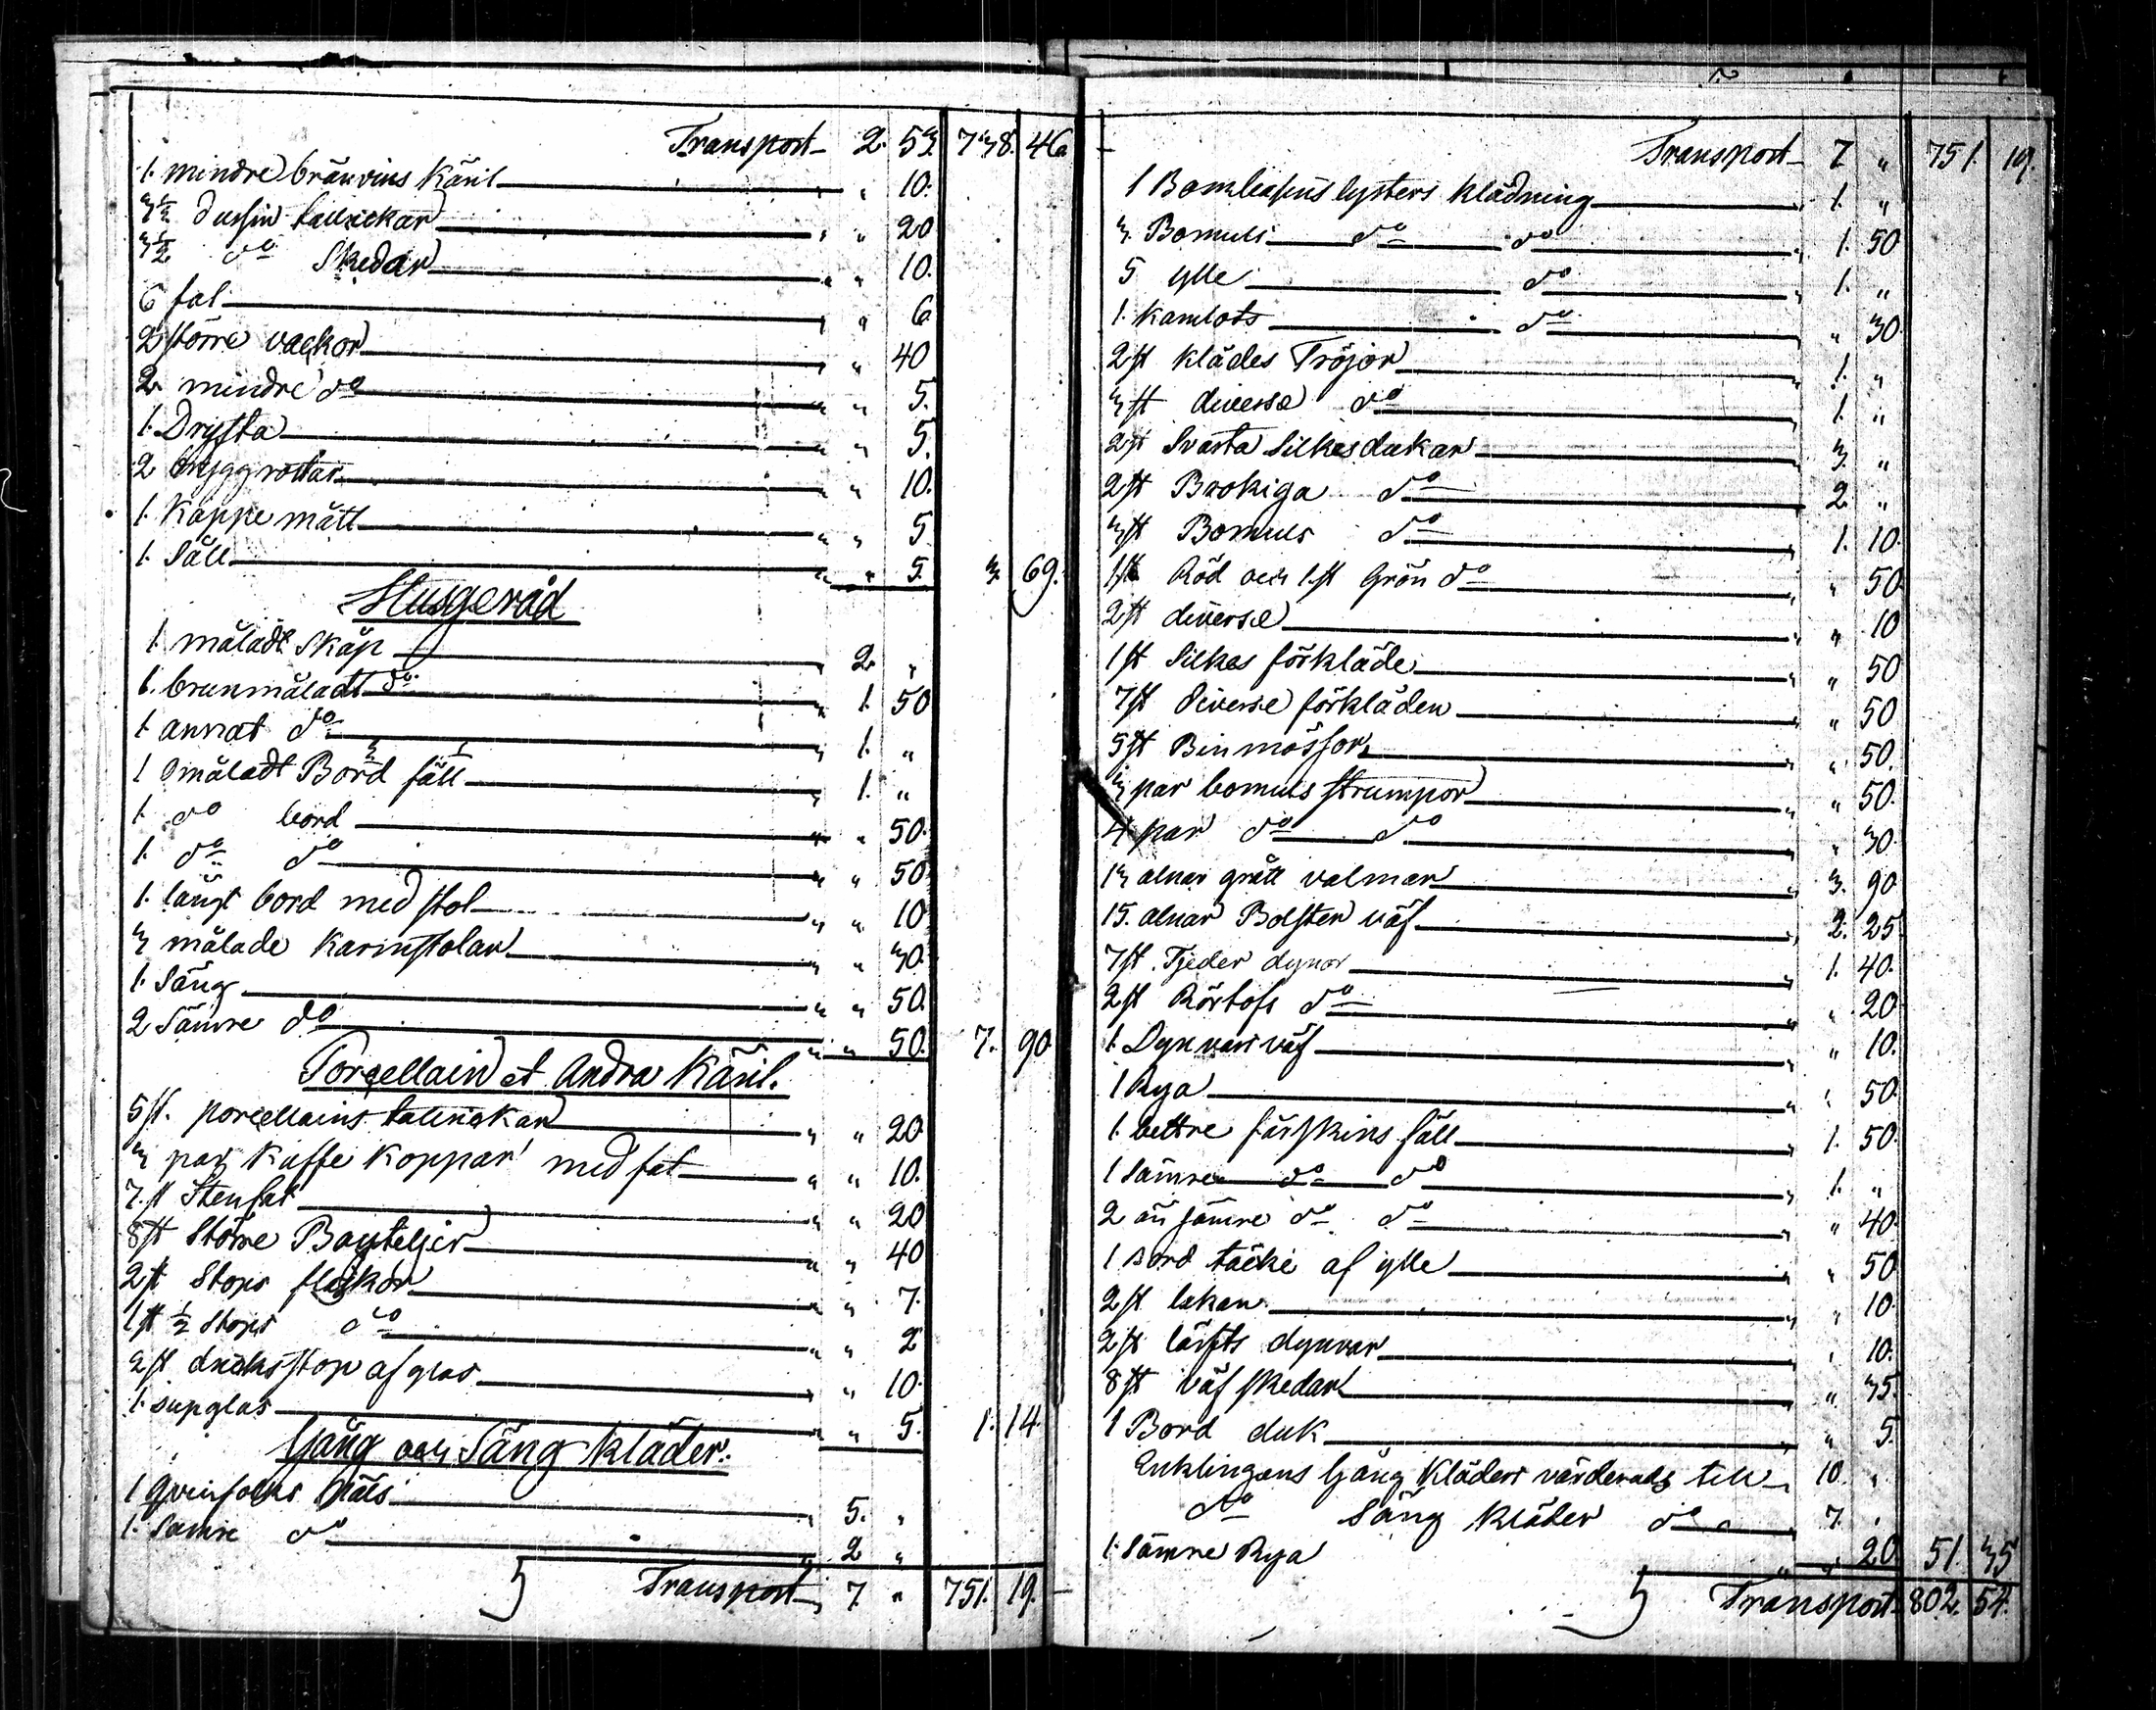 Transport 2. 53. 738. 46
1. mindre bränvins Käril " " 10.
3½ dussin tallrickar " " 20
3½ do Skedar " " 10.
6 fat " " 6
2 större vackor " " 40
2 mindre do " " 5.
1. Drysta " " 5.
2 bryggrostar " " 10.
1. Kappe mått " " 5
1. Såll " " 5. 3. 69.
Husgeråd
1. måladt Skåp " 2. "
1. brunmåladt do " 1. 50
1 annat do " 1. "
1 Omåladt Bord fäll " 1. "
1. do bord " " 50.
1. do do " " 50
1. långt bord med stol " " 10
3 målade Karmstolar " " 30.
1. Säng " " 50.
2 Sämre do " " 50. 7. 90
Porcellain et Andra Käril.
5 st. porcellains tallrickar " " 20
3 par Kaffe Koppar med fat " " 10.
7. st Stenfat " " 20
8 st Större Bouteljer " " 40
2 st Stops flaskor " " 7.
1 st ½ Stops do " " 2
2 st dricksstop af glas " " 10.
1. supglas " " 5. 1. 14.
Gång och Säng kläder.
1 Qvinfolks Päls " 5. "
1. Sämre do " 2 "
Transport 7. " 751. 19.
Transport 7 " 751. 19.
1 Bomleasins lysters klädning " 1. "
3. Bomuls do do " 1. 50
5 ylle do " 1. "
1. Kamlots do " " 30
2 st klädes Tröjor " 1. "
3 st diverse do " 1. "
2 st Svarta Silkesdukar " 3. "
2 st Brokiga do 2. "
3 st Bomuls do " 1. 10.
1 st Röd och 1. st Grön do " " 50
2 st diverse " " 10
1 st Silkes förkläde " " 50
7 st diverse förkläden " " 50
5 st Binmössor " " 50.
3 par bomuls strumpor " " 50.
4 par do do " " 30.
13 alnar grått valmar " 3. 90
15. alnar Bolster väf " 2. 25
7 st. Fjeder dynor " 1. 40.
2 st Rörtofs do " " 20
1. Dynvars väf " " 10.
1 Rya " " 50.
1. bättre fårskins fäll " 1. 50.
1 Sämre do do " 1. "
2 än sämre do do " " 40
1 Bord täcke af ylle " " 50
2 st lakan " " 10.
2 st lärfts dynvar " " 10.
8 st väf skedar " " 35.
1 Bord duk " " 5.
Enklingens Gång Kläder värderads till 10. "
do Säng Kläder do " 7. "
1. Sämre Rya " " 20 51. 35
Transport 802. 54.